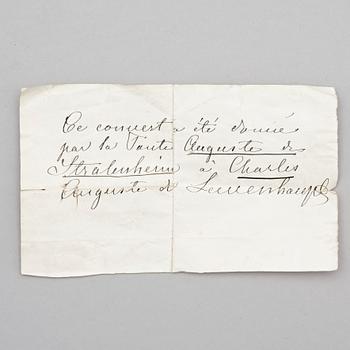 Ce couvert a été donné
par la Tante Auguste de
Stralenheim à Charles
Auguste de Lewenhaupt